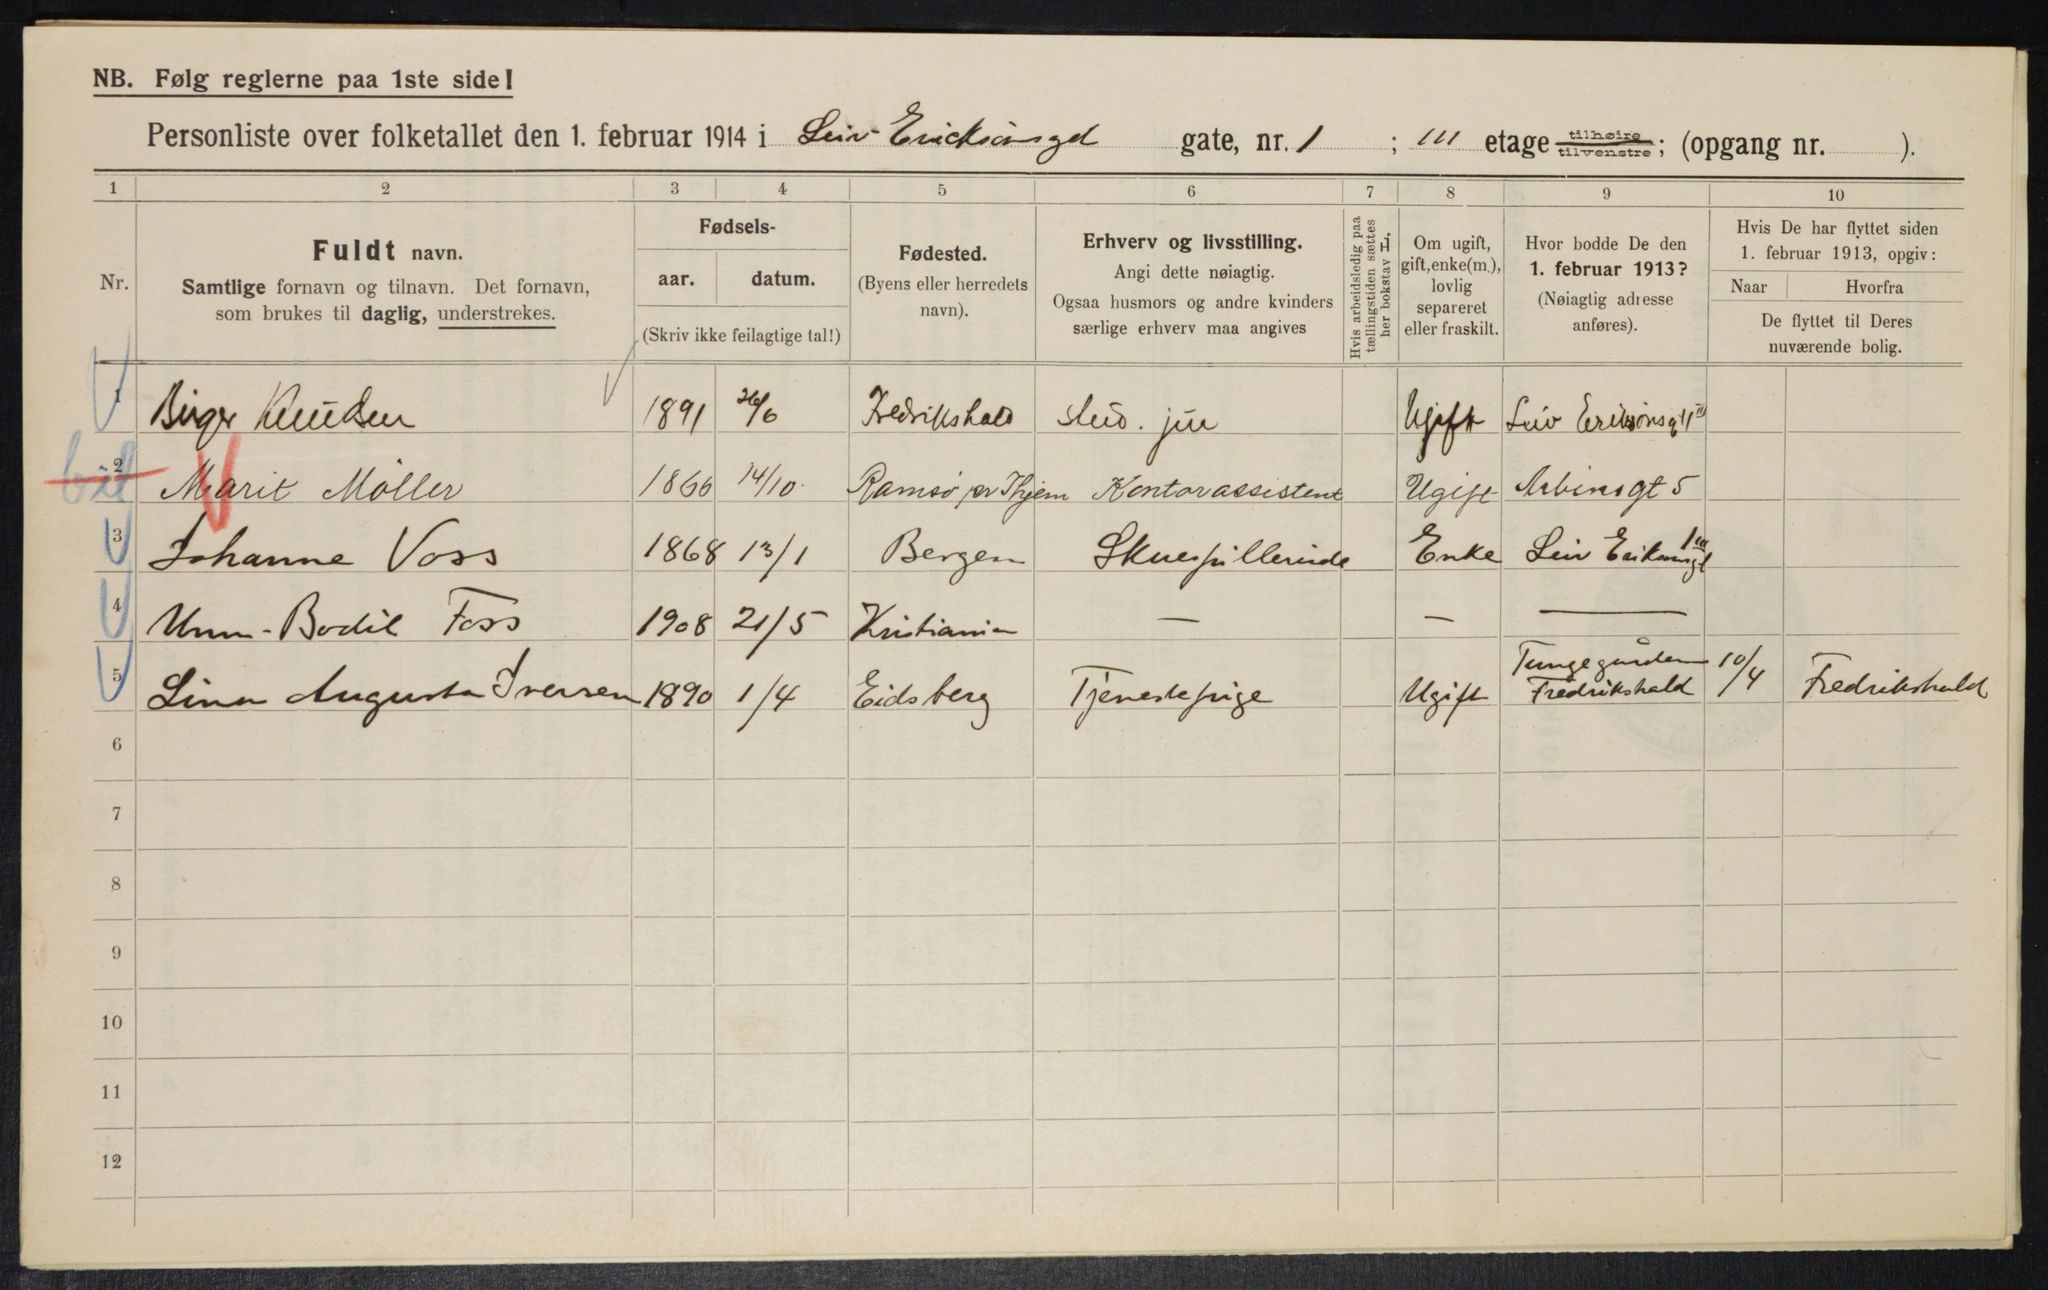 NB. Følg reglerne paa 1ste side!
Personliste over folketallet den 1. februar 1914 i Leiv Ericksönsgd gate, nr. 1 ; III etage tilhøire tilvenstre; (opgang nr. ).
1 2 3 4 5 6 7 8 9 10
Nr.
Fuldt navn.
Samtlige fornavn og tilnavn. Det fornavn,
som brukes til daglig, understrekes.
Fødsels-
aar. datum.
(Skriv ikke feilagtige tal!)
Fødested.
(Byens eller herredets
navn).
Erhverv og livsstilling.
Angi dette nøiagtig.
Ogsaa husmors og andre kvinders
særlige erhverv maa angives
Hvis arbeidsledig paa
tællingstiden sættes
her bokstav H,
Om ugift,
gift, enke(m.),
lovlig
separeret
eller fraskilt.
Hvor bodde De den
1. februar 1913?
(Nøiagtig adresse
anføres).
Hvis De har flyttet siden
1. februar 1913, opgiv:
Naar Hvorfra
De flyttet til Deres
nuværende bolig.
1 Birger Knudsen 1891 26/6 Fredrikshald stud. jur Ugift Leiv Eriksönsg 1 III
2 Marit Möller 1866 14/10 Ramsö pr Thjem Kontorassistent Ugift Arbinsgt 5
3 Johanne Voss 1868 13/1 Bergen Skuespillerinde Enke Leiv Eriksnsgt 1 III
4 Unn-Bodil Foss 1908 21/5 Kristiania — — —
5 Lina Augusta Iversen 1890 1/4 Eidsberg Tjenestepige Ugift Tungegården
Fredrikshald 10/4 Fredrikshald
6
7
8
9
10
11
12